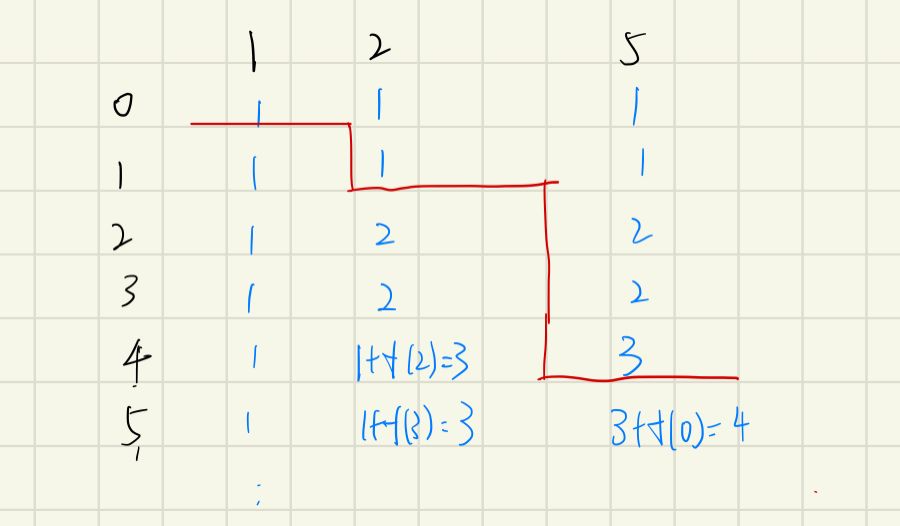 1 2 5
0 1 1 1
1 1 1 1
2 1 2 2
3 1 2 2
4 1 1+f(2)=3 3
5 1 1+f(3)=3 3+f(0)=4
⋮